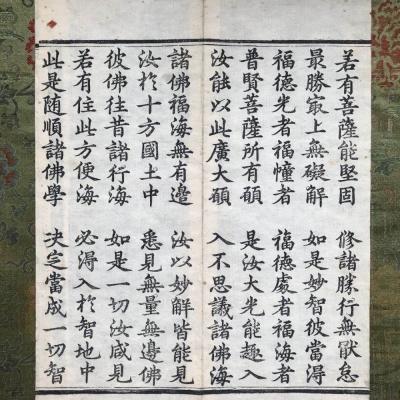 若有菩薩能堅固 修諸勝行無厭怠
最勝㝡上無礙解 如是妙智彼當得
福德光者福幢者 福德處者福海者
普賢菩薩所有願 是汝大光能趣入
汝能以此廣大願 入不思議諸佛海
諸佛福海無有邊 汝以妙解皆能見
汝於十方國土中 悉見無量無邊佛
彼佛往昔諸行海 如是一切汝咸見
若有住此方便海 必得入於智地中
此是随順諸佛學 决定當成一切智